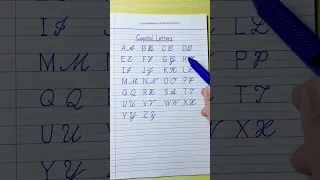 Capital Letters
A A B B C C D D
E E F F G G H
I I J J K K L L
M M N N O O P P
Q Q R R S S T T
U U V V W W X X
Y Y Z Z